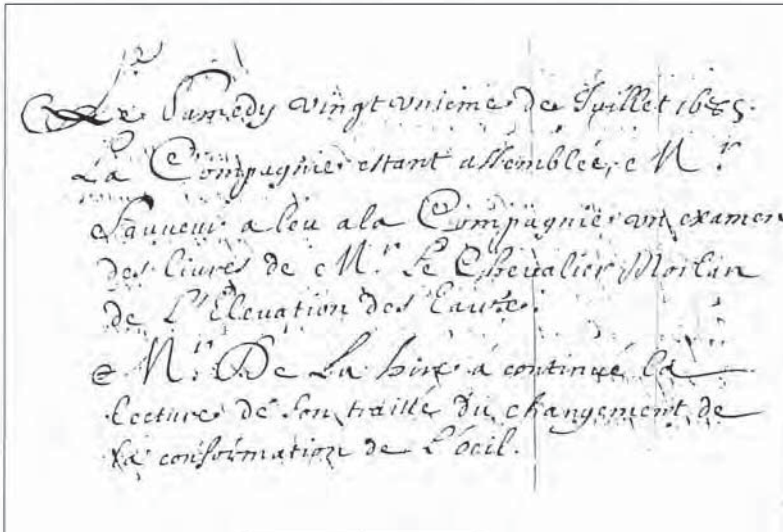 Le Samedy vingt unieme de Juillet 1685.
La Compagnie estant assemblée, Mr.
Sauveur a leu a la Compagnie un examen
des livres de Mr. Le Chevalier Morlan
de L'Elevation des Eaux.
Mr. De La hire a continué la
lecture de son traitté du changement de
la conformation de L'oeil.